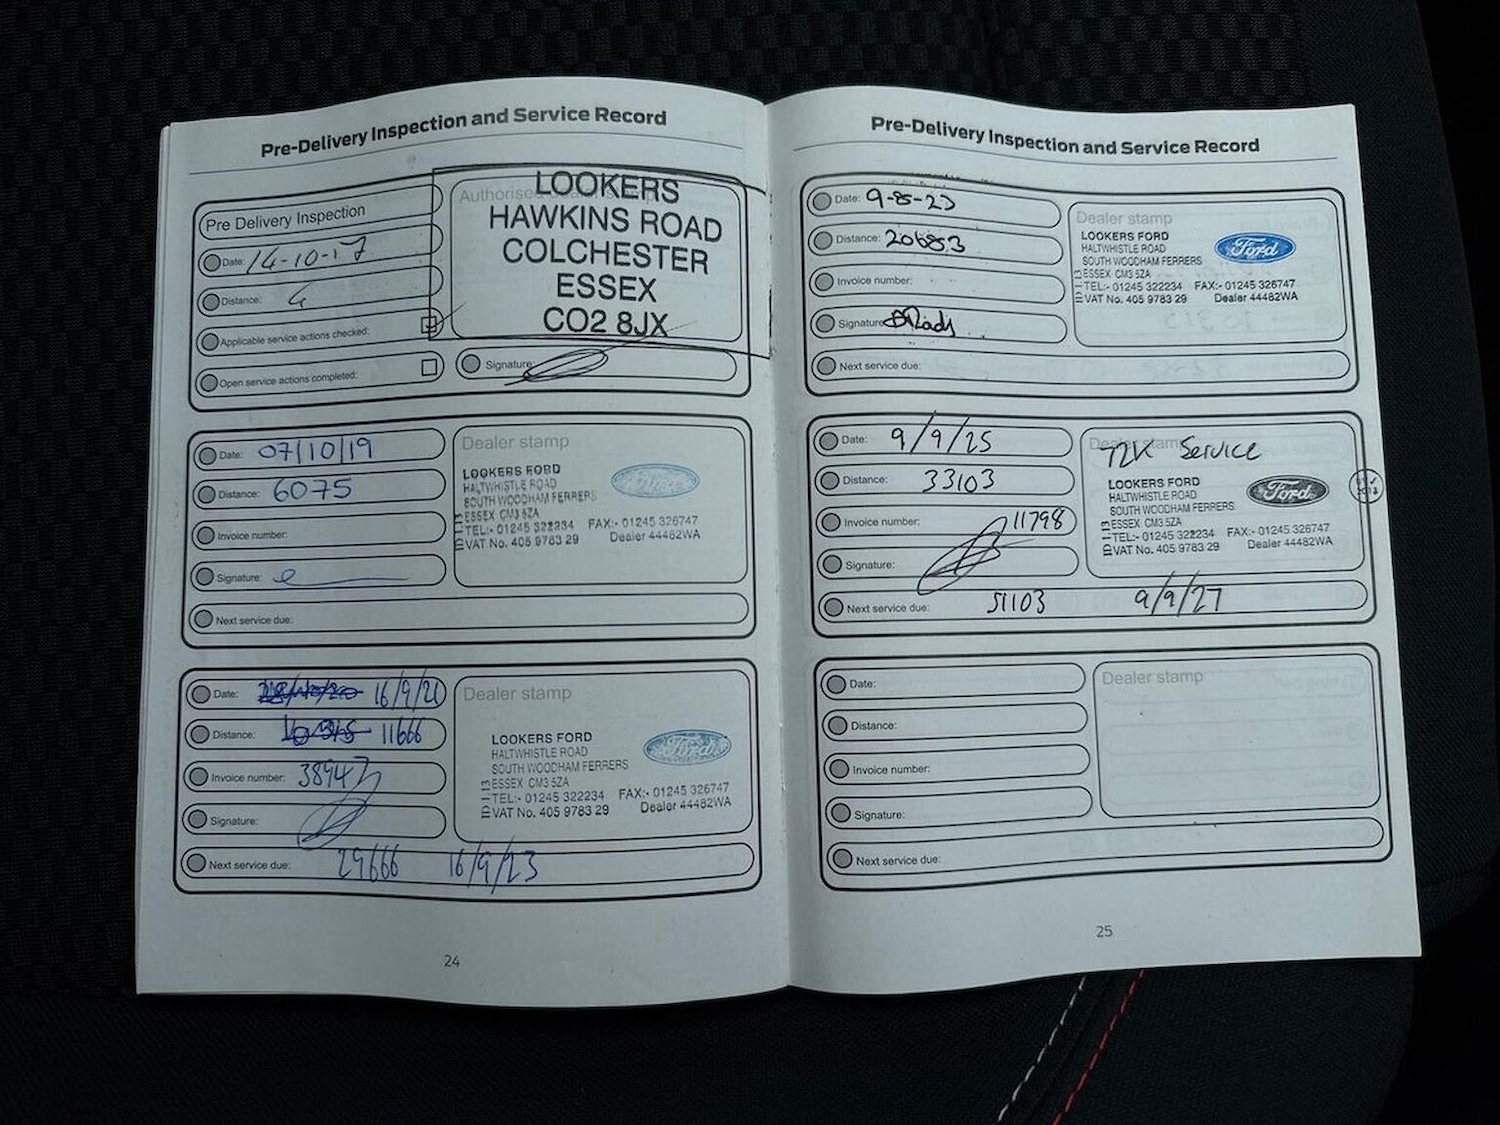 Pre-Delivery Inspection and Service Record
Pre Delivery Inspection
Date: 14-10-17
Distance: 6
Applicable service actions checked:
Open service actions completed:
Authorised
LOOKERS
HAWKINS ROAD
COLCHESTER
ESSEX
CO2 8JX
Signature:
Date: 07/10/19
Distance: 6075
Invoice number:
Signature:
Next service due:
Dealer stamp
LOOKERS FORD
HALTWHISTLE ROAD
SOUTH WOODHAM FERRERS
ESSEX CM3 5ZA
TEL:- 01245 322234 FAX:- 01245 326747
VAT No. 405 9783 29 Dealer 44482WA
ID 1113
Date: 16/9/21
Distance: 11666
Invoice number: 38947
Signature:
Next service due: 29666 16/9/23
Dealer stamp
LOOKERS FORD
HALTWHISTLE ROAD
SOUTH WOODHAM FERRERS
ESSEX CM3 5ZA
TEL:- 01245 322234 FAX:- 01245 326747
VAT No. 405 9783 29 Dealer 44482WA
ID 1113
Ford
24
Pre-Delivery Inspection and Service Record
Date: 9-8-23
Distance: 20683
Invoice number:
Signature
Next service due:
Dealer stamp
LOOKERS FORD
HALTWHISTLE ROAD
SOUTH WOODHAM FERRERS
ESSEX CM3 5ZA
TEL:- 01245 322234 FAX:- 01245 326747
VAT No. 405 9783 29 Dealer 44482WA
ID 1113
Ford
Date: 9/9/25
Distance: 33103
Invoice number: 11798
Signature:
Next service due: 51103 9/9/27
Dealer stamp
72K Service
LOOKERS FORD
HALTWHISTLE ROAD
SOUTH WOODHAM FERRERS
ESSEX CM3 5ZA
TEL:- 01245 322234 FAX:- 01245 326747
VAT No. 405 9783 29 Dealer 44482WA
ID 1113
Ford
Date:
Distance:
Invoice number:
Signature:
Next service due:
Dealer stamp
25